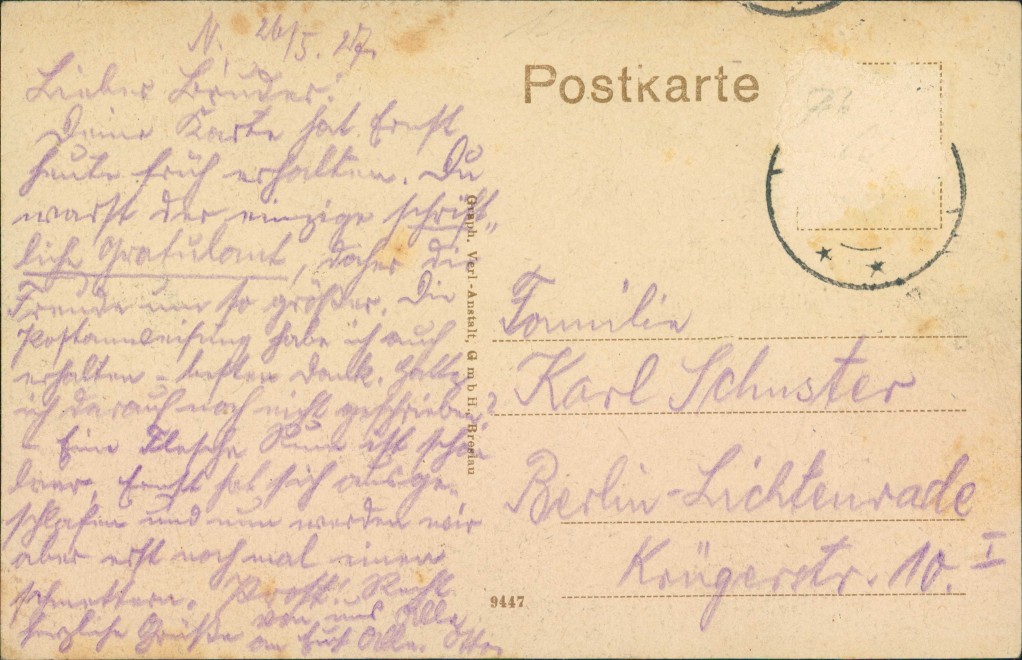 N. 26/5. 27.
Lieber Bruder!
Deine Karte hat Ernst
heute früh erhalten. Du
warst der einzige schrift„
liche Gratulant, daher die
Freude um so größer. Die
Postanweisung habe ich auch
erhalten - besten Dank. Hatte
ich darauf noch nicht geschrieben?
- Eine Flasche Rum ist schon
leer, Ernst hat sich ausge-
schlafen und nun werden wir
aber erst noch mal einen
schmettern. Prost! Recht
herzliche Grüße von uns Alle
an Euch Alle. Otto.
Postkarte
Graph. Verl.-Anstalt, G m b H., Breslau
Familie
Karl Schuster
Berlin-Lichtenrade
Krügerstr. 10. I
9447